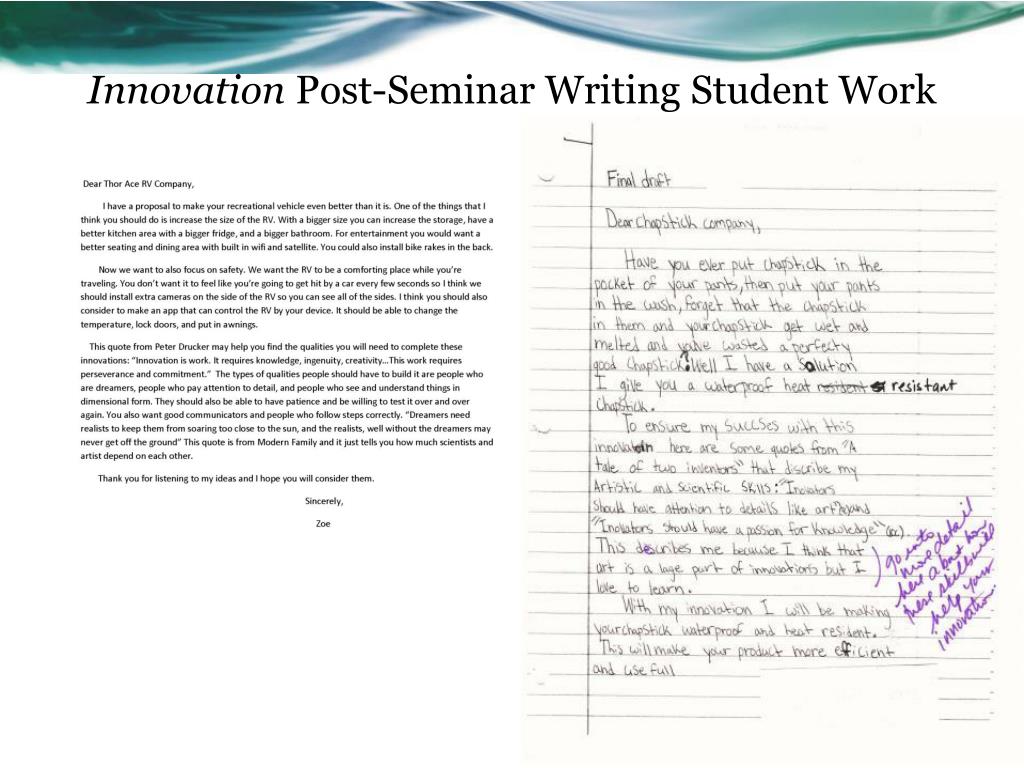 Innovation Post-Seminar Writing Student Work
Dear Thor Ace RV Company,
I have a proposal to make your recreational vehicle even better than it is. One of the things that I
think you should do is increase the size of the RV. With a bigger size you can increase the storage, have a
better kitchen area with a bigger fridge, and a bigger bathroom. For entertainment you would want a
better seating and dining area with built in wifi and satellite. You could also install bike rakes in the back.
Now we want to also focus on safety. We want the RV to be a comforting place while you're
traveling. You don't want it to feel like you're going to get hit by a car every few seconds so I think we
should install extra cameras on the side of the RV so you can see all of the sides. I think you should also
consider to make an app that can control the RV by your device. It should be able to change the
temperature, lock doors, and put in awnings.
This quote from Peter Drucker may help you find the qualities you will need to complete these
innovations: "Innovation is work. It requires knowledge, ingenuity, creativity…This work requires
perseverance and commitment." The types of qualities people should have to build it are people who
are dreamers, people who pay attention to detail, and people who see and understand things in
dimensional form. They should also be able to have patience and be willing to test it over and over
again. You also want good communicators and people who follow steps correctly. "Dreamers need
realists to keep them from soaring too close to the sun, and the realists, well without the dreamers may
never get off the ground" This quote is from Modern Family and it just tells you how much scientists and
artist depend on each other.
Thank you for listening to my ideas and I hope you will consider them.
Sincerely,
Zoe
Final draft
Dear chapstick company,
Have you ever put chapstick in the
pocket of your pants, then put your pants
in the wash, forget that the chapstick
in them and your chapstick get wet and
melted and you've wasted a perfecty
good chapstick? Well I have a solution
I give you a waterproof heat resident resistant
chapstick.
To ensure my succses with this
innovation here are some quotes from "A
tale of two inventors" that discribe my
Artistic and scientific skills: "Inovators
should have attention to details like art" and
"Inovators should have a passion for knowledge"
This describes me because I think that
art is a lage part of innovations but I
love to learn.
With my innovation I will be making
your chapstick waterproof and heat resident.
This will make your product more efficient
and use full
go into
more detail
here about how
these skills will
help your
innovation.